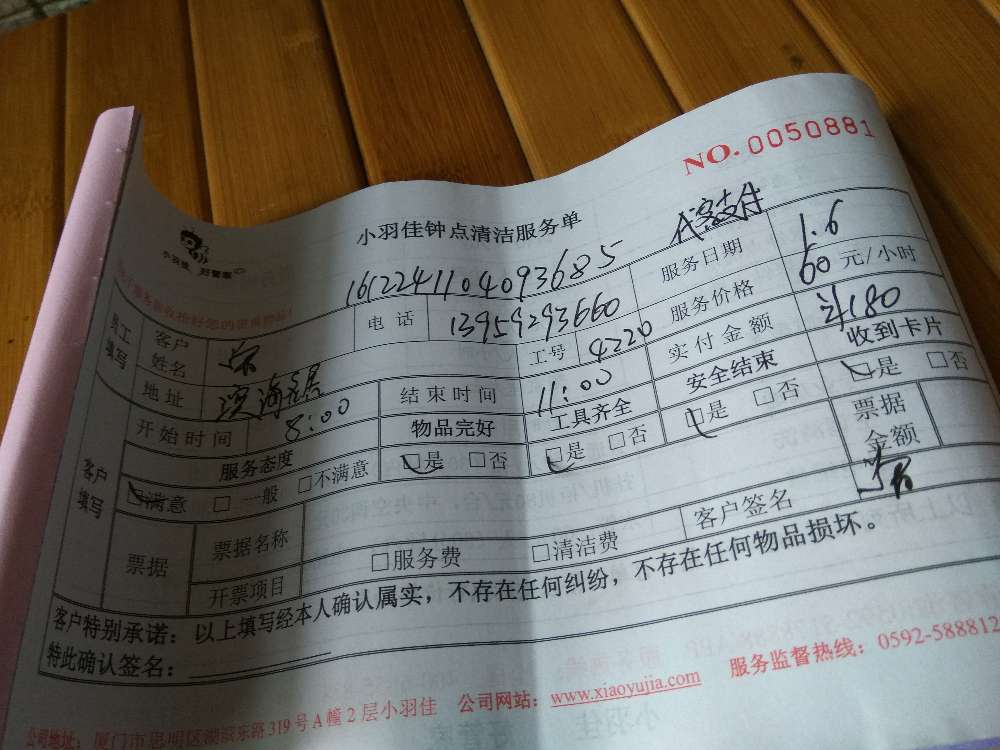 NO.0050881
小羽佳钟点清洁服务单
小羽佳 好管家
161224110409368S
员工填写 客户姓名 电话 13959293660 服务日期 1.6
地址 工号 4220 服务价格 60 元/小时
开始时间 8:00 结束时间 11:00 实付金额 180
服务态度 物品完好 工具齐全 安全结束 收到卡片
客户填写 □满意 □一般 □不满意 □是 □否 □是 □否 □是 □否 □是 □否
票据 票据名称 □服务费 □清洁费 客户签名 票据金额
开票项目
客户特别承诺：以上填写经本人确认属实，不存在任何纠纷，不存在任何物品损坏。
特此确认签名：
公司地址：厦门市思明区 东路319号A幢2层小羽佳 公司网站：www.xiaoyujia.com 服务监督热线：0592-588812